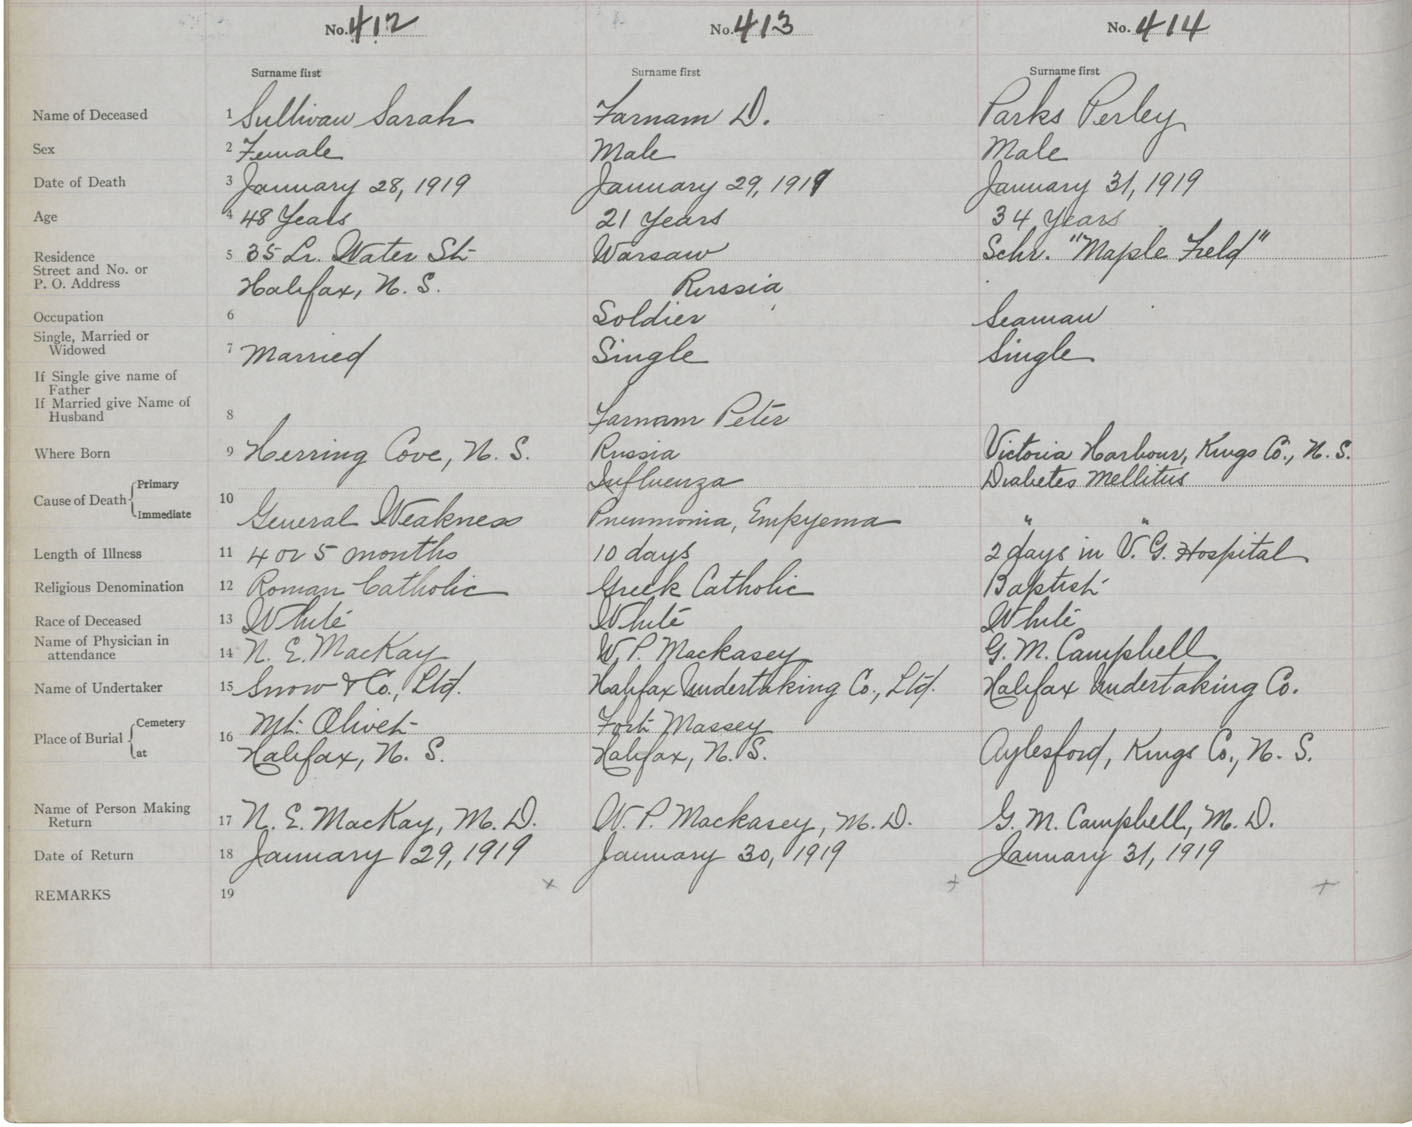 No. 412 No. 413 No. 414
Surname first Surname first Surname first
Name of Deceased 1 Sullivan Sarah Farnam D. Parks Perley
Sex 2 Female Male Male
Date of Death 3 January 28, 1919 January 29, 1919 January 31, 1919
Age 4 48 Years 21 Years 34 Years
Residence 5 35 Lr. Water St. Warsaw Schr. "Maple Field"
Street and No. or
P. O. Address Halifax, N. S. Russia
Occupation 6 Soldier Seaman
Single, Married or
Widowed 7 Married Single Single
If Single give name of
Father
If Married give Name of
Husband 8 Farnam Peter
Where Born 9 Herring Cove, N. S. Russia Victoria Harbour, Kings Co., N. S.
Primary Influenza Diabetes Mellitus
Cause of Death 10
Immediate General Weakness Pneumonia, Empyema " "
Length of Illness 11 4 or 5 months 10 days 2 days in V. G. Hospital
Religious Denomination 12 Roman Catholic Greek Catholic Baptist
Race of Deceased 13 White White White
Name of Physician in
attendance 14 N. E. MacKay W. P. Mackasey G. M. Campbell
Name of Undertaker 15 Snow & Co., Ltd. Halifax Undertaking Co., Ltd. Halifax Undertaking Co.
Cemetery Mt. Olivet Fort Massey
Place of Burial 16
at Halifax, N. S. Halifax, N. S. Aylesford, Kings Co., N. S.
Name of Person Making
Return 17 N. E. MacKay, M. D. W. P. Mackasey, M. D. G. M. Campbell, M. D.
Date of Return 18 January 29, 1919 January 30, 1919 January 31, 1919
REMARKS 19 x + +